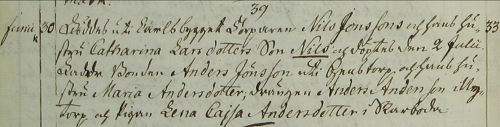 39
Junii 30 Föddes uti Carlsbygget Torparen Nils Jonssons och hans Hu- 33
stru Catharina Larsdotters Son Nils och döptes den 2 Julii.
Bonden Anders Jönsson uti torp och hans hu-
stru Maria Andersdotter, Drängen Anders Andersson
torp och Pigan Lena Cajsa Andersdotter i Skarboda